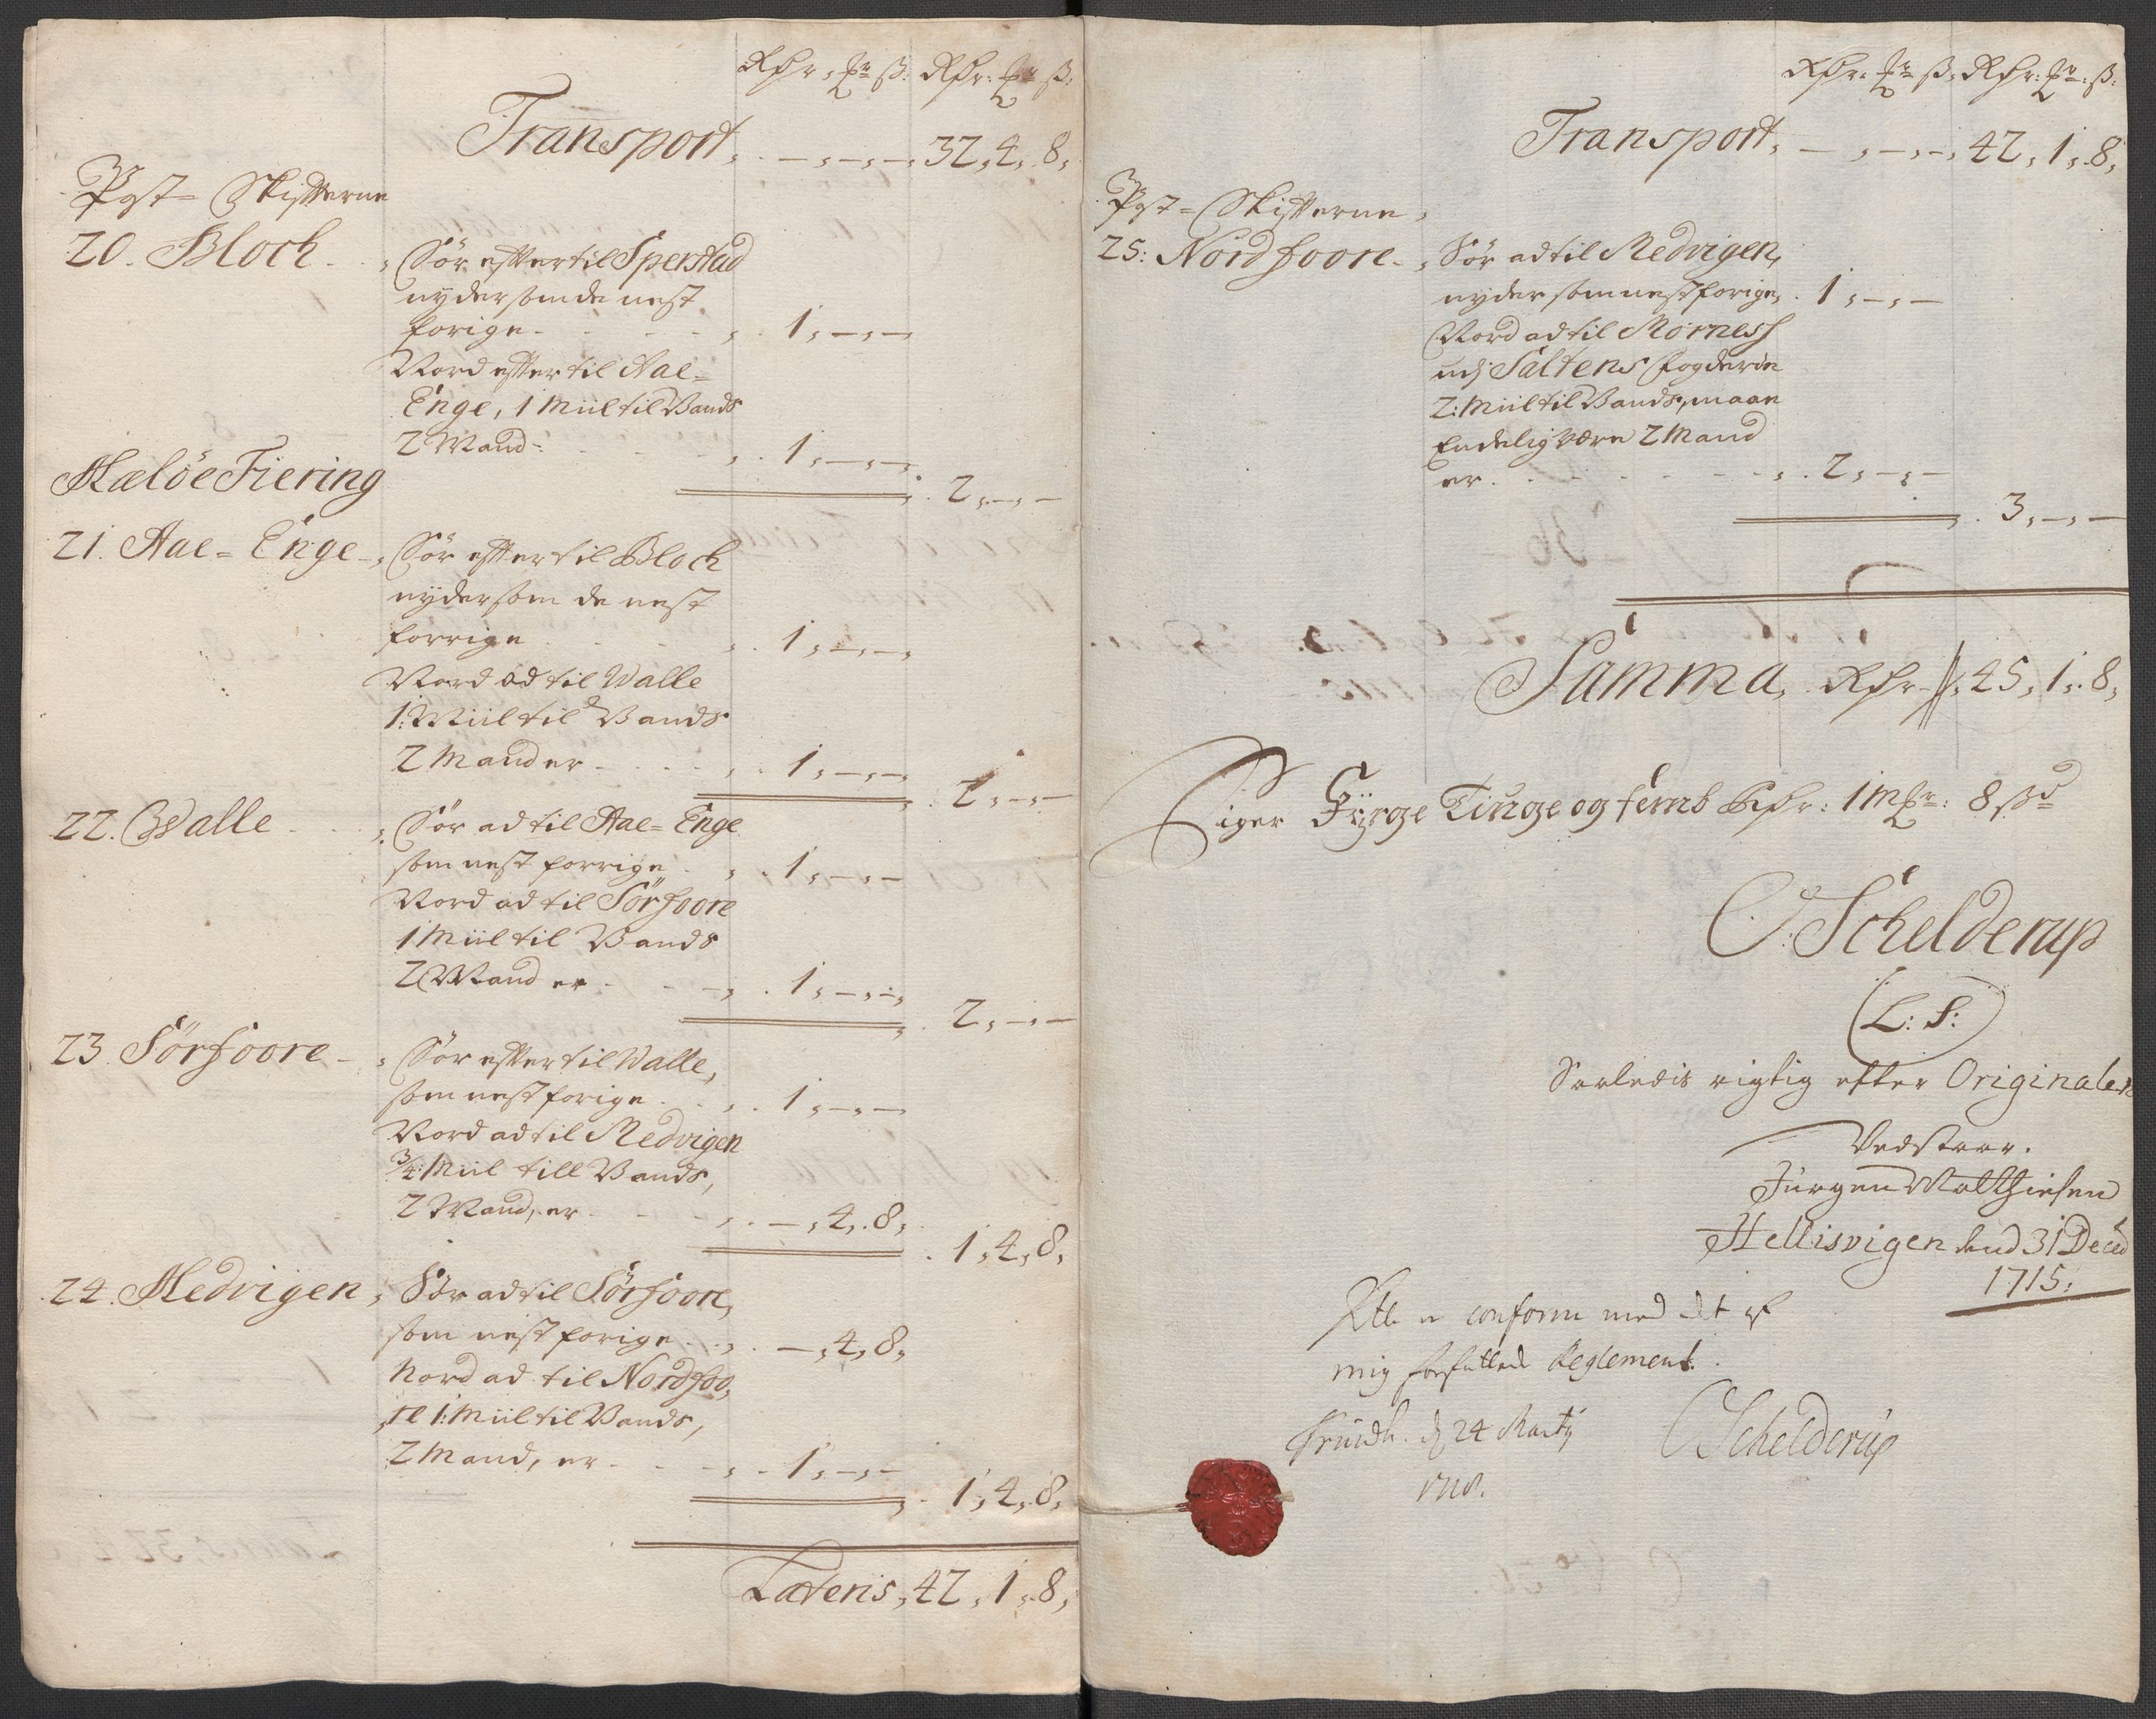 Rdr: Mr ß: Rdr: Mr ß:
Transport, . – , – , – , 32, 4, 8,
Post-Skifterne
20. Bloch . . , Sør efter til Sperstad
nyder som de nest
forige - - - - , . 1, –, –
Nord efter til Aae-
Enge, 1 Miil til Vands
2 Mand - - - - , . 1, –, –,
. 2, –, –
Mæløe Fiering
21. Aae-Enge - , Sør efter til Bloch
nyder som de nest
forrige . . . , . 1, –, –,
Nord ad til Walle
1: Miil til Vands
2 Mand er - . . . , . 1, –, –,
. 2, –, –
22. Walle . . . , Sør ad til Aae-Enge
som nest forrige . , . 1, –, –
Nord ad til Sørfoore
1 Miil til Vands
2 Mand er - - - , . 1, –, –,
. 2, –, –
23. Sørfoore - , Sør efter til Walle,
som nest forige . . , . 1, –, –
Nord ad til Medvigen
3/4: Miil till Vands,
2 Mand, er - - - , . –, 4, 8,
. 1, 4, 8,
24. Medvigen , Sør ad til Sørfoore,
som nest forige . . , . –, 4, 8,
Nord ad til Nordfoo,
,re 1: Miil til Vands,
2 Mand, er - - - , - 1, –, –
. 1, 4, 8,
Lateris, 42, 1, 8,
Rdr: Mr ß: Rdr: Mr: ß:
Transport, – , – , – , 42, 1, 8,
Post-Skifterne,
25: Nordfoore - , Sør ad til Medvigen,
nyder som nest forige, . 1, –, –
Nord ad til Mørness
udj Saltens Fogderie
2: Miil til Vands, maae
Endelig være 2 Mand
er . . . . - - , . 2, –, –
. 3, –, –
Summa, Rdr //: 45, 1, 8,
Siger Fyrge Tiuge og femb Rdr: 1 Mr: 8 ßd
O: Schelderup
(L: S:)
Saaledis rigtig efter Originalen
Vedstaar.
Jürgen Matthiesen
Hellisvigen dend 31 Decb
1715:
Att er conform med det af
mig forfattede Reglement.
Trundh. d 24 Martij OSchelderup
1716.